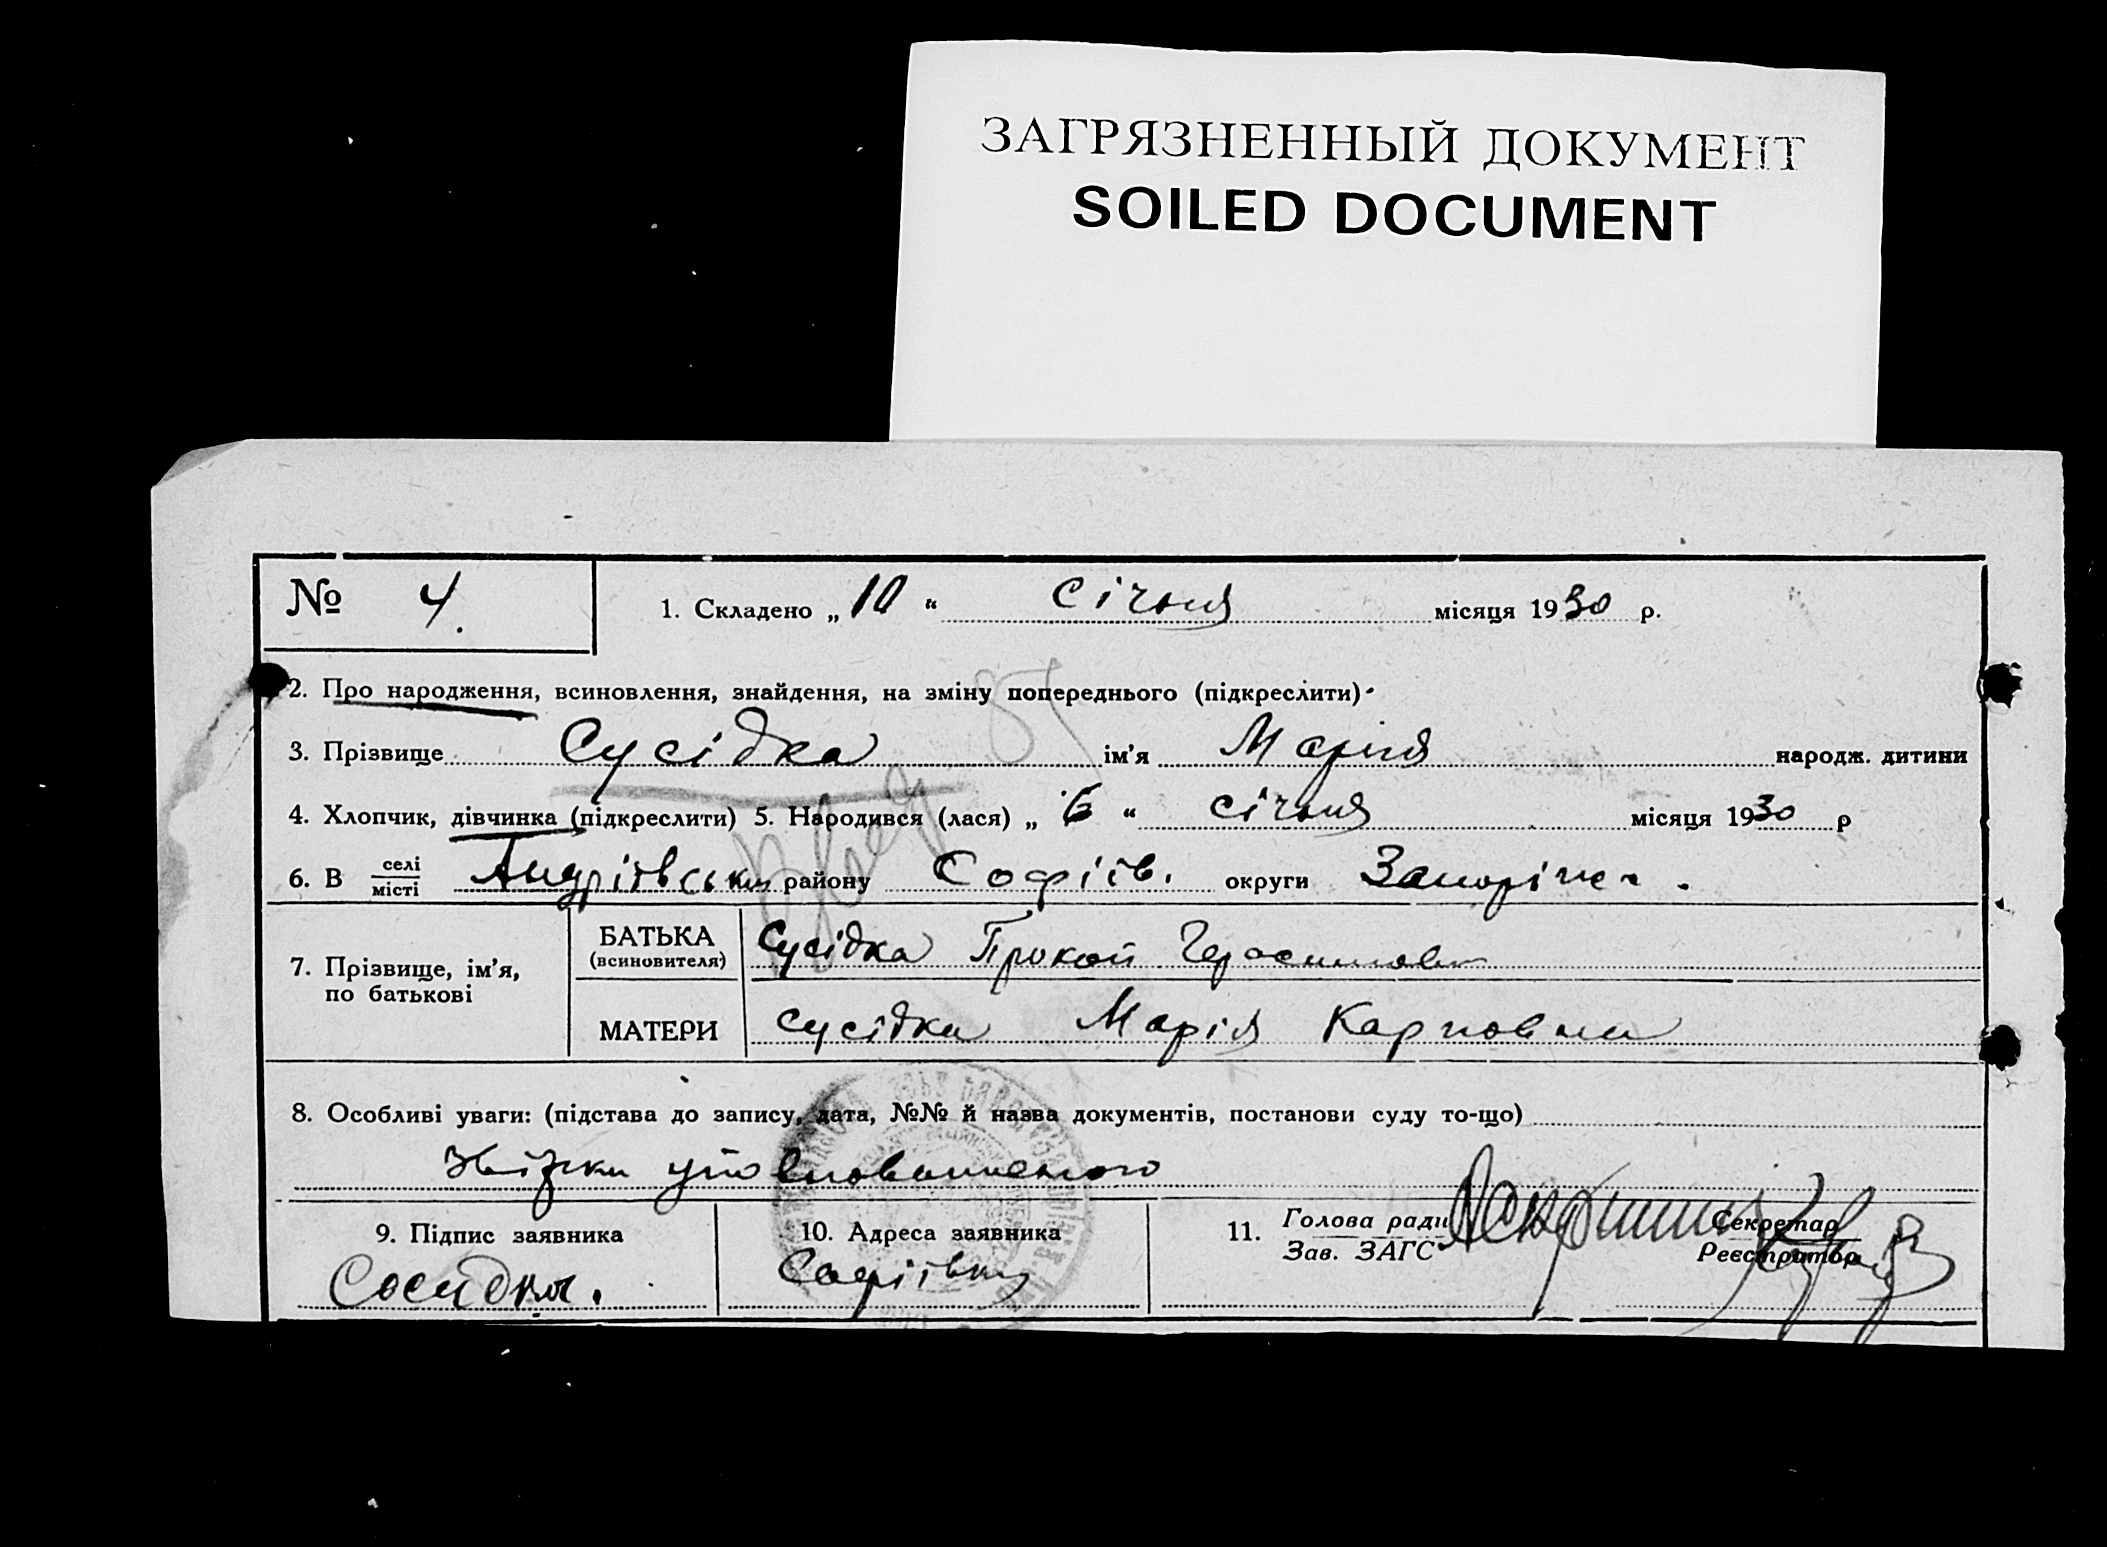 ЗАГРЯЗНЕННЫЙ ДОКУМЕНТ
SOILED DOCUMENT
№ 4.
1. Складено „ 10 “ Січня місяця 1930 р.
2. Про народження, всиновлення, знайдення, на зміну попереднього (підкреслити)
3. Прізвище Сусідка ім’я Марія народж. дитини
4. Хлопчик, дівчинка (підкреслити) 5. Народився (лася) „ 6 “ січня місяця 1930 р
6. В селі місті району Софіїв. округи
7. Прізвище, ім’я, по батькові
БАТЬКА (всиновителя) Сусідка Прокоп
МАТЕРИ Сусідка Марія Карповна
8. Особливі уваги: (підстава до запису, дата, №№ й назва документів, постанови суду то-що)
9. Підпис заявника
10. Адреса заявника
11. Голова ради Зав. ЗАГС Секретар Реєстратор
Софіївка